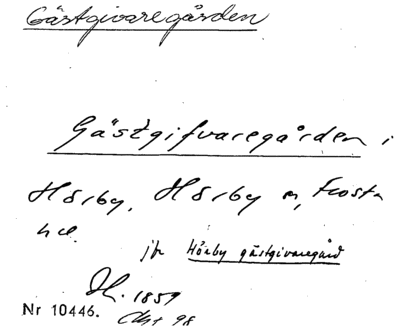 Gästgivaregården
Gästgifvaregården i
Hörby, Hörby sn, Frosta
hd.
jfr Hörby gästgivaregård
1859
Nr 10446.
98